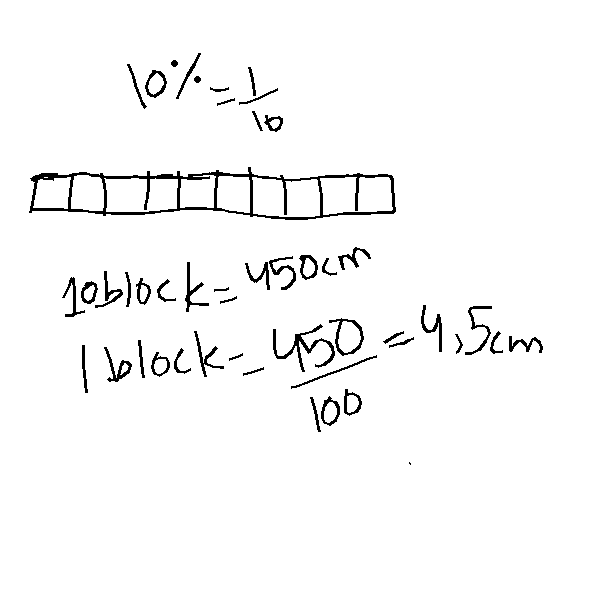 10% = 1/10
10 block = 450cm
1 block = 450/100 = 4,5cm